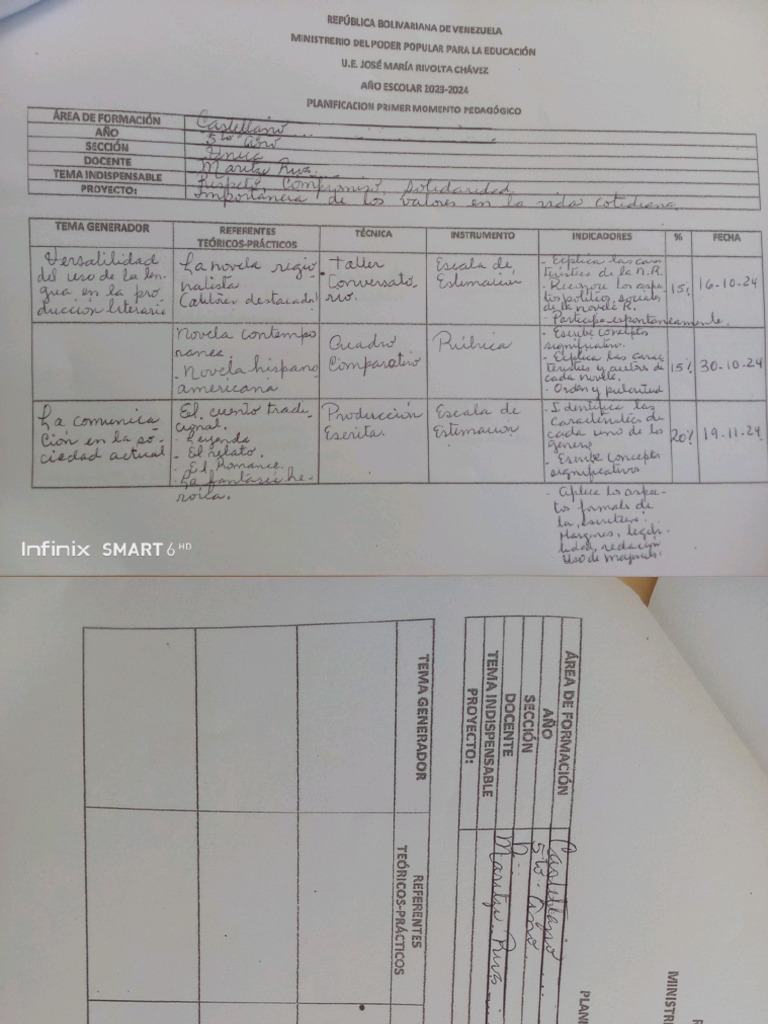 REPÚBLICA BOLIVARIANA DE VENEZUELA
MINISTRERIO DEL PODER POPULAR PARA LA EDUCACIÓN
U.E. JOSÉ MARÍA RIVOLTA CHÁVEZ
AÑO ESCOLAR 2023-2024
PLANIFICACION PRIMER MOMENTO PEDAGÓGICO
ÁREA DE FORMACIÓN Castellano
AÑO 5to Año
SECCIÓN Única
DOCENTE Maritza Ruz
TEMA INDISPENSABLE Respeto, Compromiso, Solidaridad
PROYECTO: Importancia de los valores en la vida cotidiana.
TEMA GENERADOR
REFERENTES
TEÓRICOS-PRÁCTICOS
TÉCNICA
INSTRUMENTO
INDICADORES
%
FECHA
Versatilidad
del uso de la len-
gua en la pro
ducción literaria
La novela regio
nalista
destacado
Taller
Conversato
rio.
Escala de
Estimación
- Explica las carac
terísticas de la N.R.
- Reconoce los aspe
tos políticos, sociales
de la novela R.
- Participa espontáneamente.
15%
16-10-24
Novela contempo
ranea.
- Novela hispano
americana
Cuadro
Comparativo
Rúbrica
- Escribe conceptos
significativos.
- Explica las carac
terísticas y autores de
cada novela.
- Orden y pulcritud
15%
30-10-24
La comunica
ción en la so-
ciedad actual
El cuento tradi-
cional.
- Leyenda
- El relato.
- El Romance.
- La fantasía he-
roica.
Producción
Escrita.
Escala de
Estimación
- Identifica las
características de
cada uno de los
géneros
- Escribe conceptos
significativos
- Aplica los aspec-
tos formales de
la escritura:
Márgenes, legibi-
lidad, redacción
Uso de mayúsc.
20%
19-11-24
Infinix SMART 6 HD
ÁREA DE FORMACIÓN Castellano
AÑO 5to. Año
SECCIÓN
DOCENTE Maritza Ruz
TEMA INDISPENSABLE
PROYECTO:
TEMA GENERADOR
REFERENTES
TEÓRICOS-PRÁCTICOS
MINISTR
PLANI